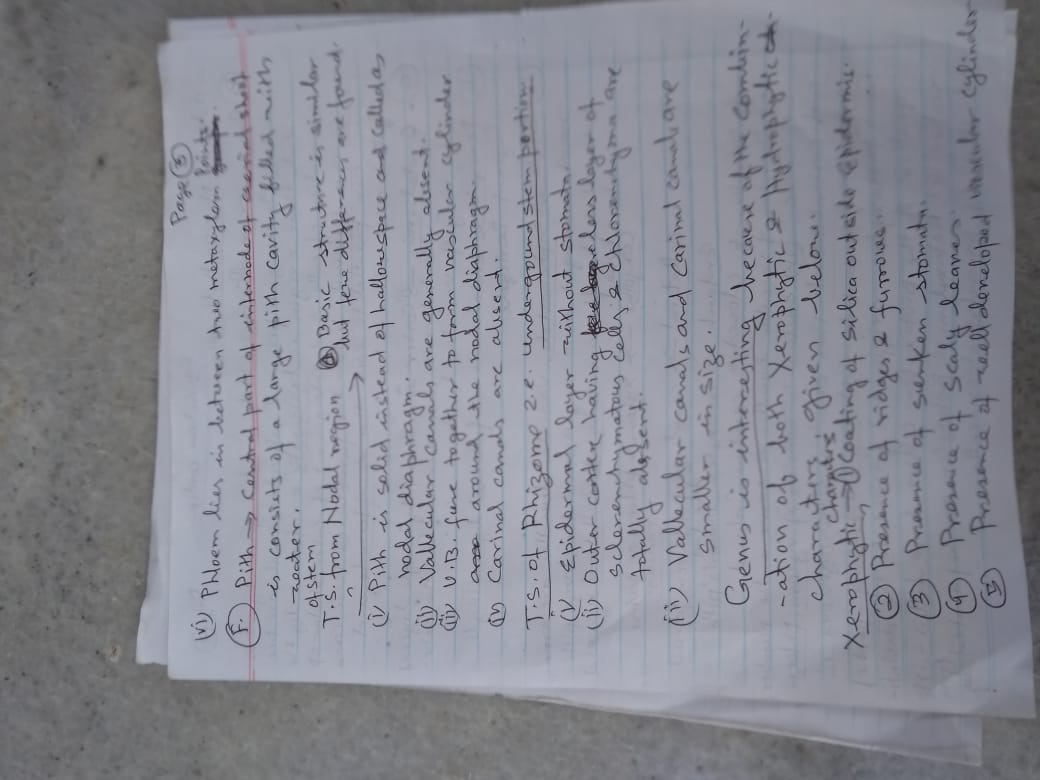 Page (3)
(vi) Phloem lies in between two metaxylem points.
(F.) Pith → Central part of internode of aerial shoot
is consists of a large pith cavity filled with
-water.
of stem
T.S. from Nodal region Basic structure is similar
but few differences are found.
(i) Pith is solid instead of hallow space and called as
nodal diaphragm.
(ii) Vallecular canals are generally absent.
(iii) V.B. fuse together to form vascular cylinder
around the nodal diaphragm
(iv) Carinal canals are absent.
T.S. of Rhizome i.e. underground stem portion.
(i) Epidermal layer without stomata.
(ii) Outer cortex having less layer of
Sclerenchymatous cells & chlorenchyma are
totally absent.
(ii) Vallecular canals and carinal canal are
smaller in size.
Genus is interesting because of the combin-
-ation of both Xerophytic & Hydrophytic
characters given below.
Xerophytic characters → (1) Coating of silica outside epidermis.
(2) Presence of ridges & furrows.
(3) Presence of sunken stomata.
(4) Presence of scaly leaves
(5) Presence of well developed vascular cylinder